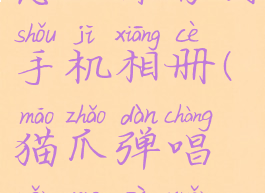 shǒu jī xiāng cè
手机相册(
māo zhǎo dàn chàng
猫爪弹唱